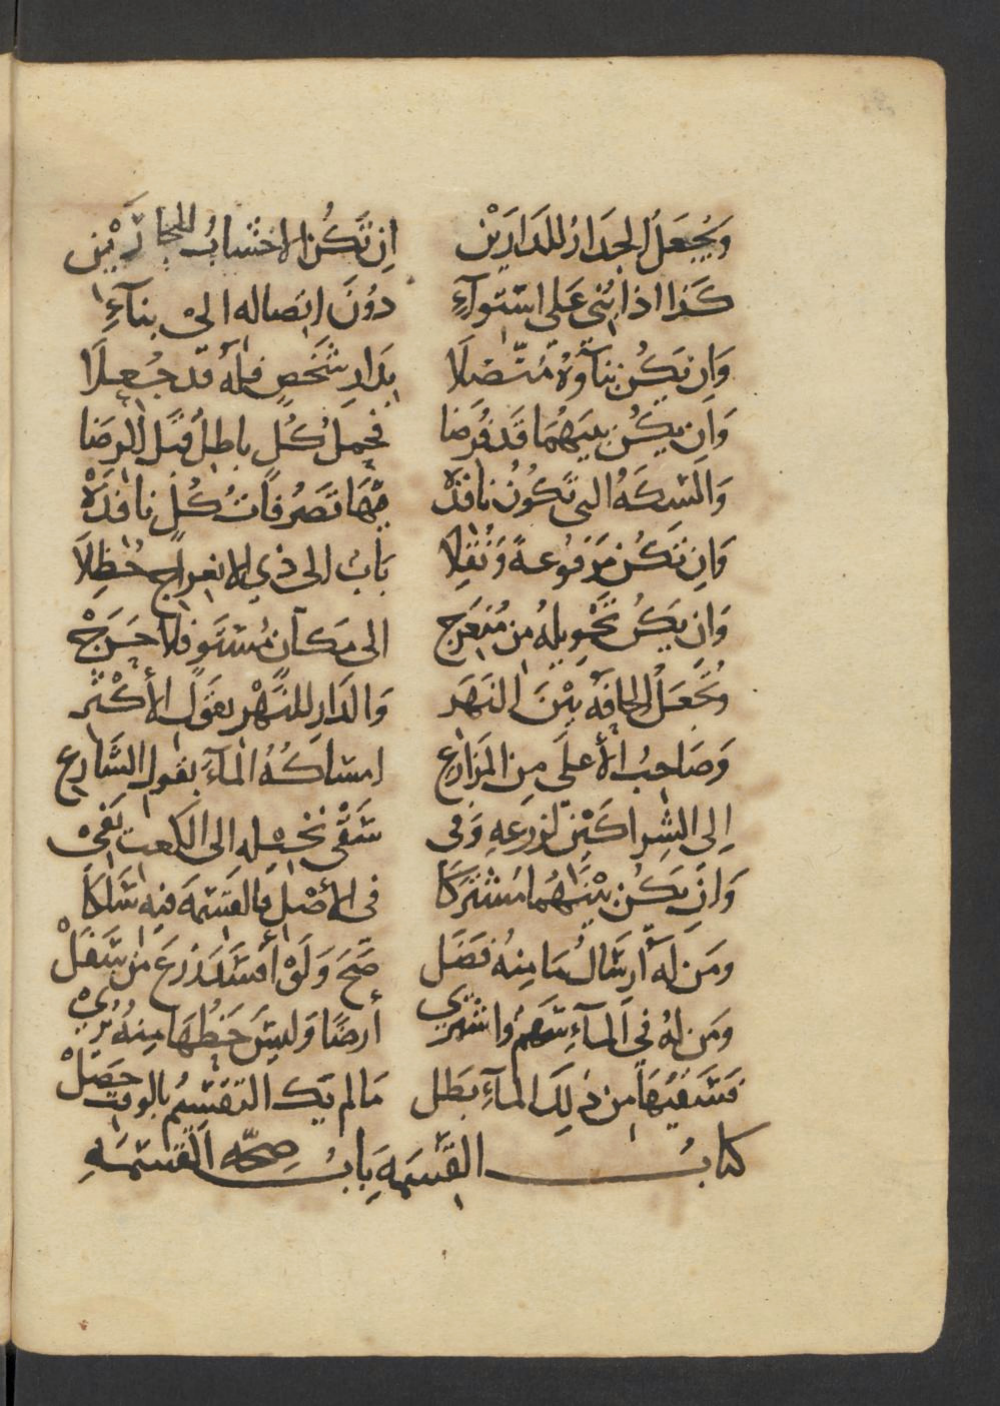 وَيُجْعَلُ الجِدَارُ لِلدَارَيْنِ اِنْ تَكُنْ الاخشابُ للجارَيْنِ
كَذا اذا بُنِى عَلى استوآءِ دوُنَ اتصاله الىْ بنآءِ
وَاِن يَكُنْ بنآوهُ مُتّصْلَا بِدَارِ شَخَصٍ فلهُ قد جُعِلَا
وَاِن يكُن بينهُمَا قَد فُرِضَا فجعلُ كُلٍ باطِلُ قبل الرِضَا
وَالسكَهُ التى تكُونُ نافذَهْ فيهَا تصَرُفاتُ كُلٍ نافذَهْ
وَاِن تَكُنْ مَرفوُعةً وَنُقِلا بابُ الى ذي الانعِراجِ حُظِلَا
وَاِن يَكُن تحْوِيلهُ من مُنعَرج الى مَكانٍ مُستوٍ فلا حَرَجْ
وتُجعَلُ الحافهُ بيْنَ النهَر وَالدَارِ للنَهْرِ بقوَل الأكْثَر
وَصَاحبُ الأعلَى مِن المزَارِع امسَاكُهُ المآءَ بقولِ الشَارِع
اِلى الشِراكَيْنِ لزرعِهِ وَفى سَقْى نخيْلهِ الى الكَعبِ يَفىْ
وَاِن يَكُن بيْنَهُمَا مُشتركَا فى الأصْلِ فالقسمَة فيهِ سَلَكَا
ومَن لهُ ارسَالُ مَا مِنهُ فَضَل صَحَ وَلَوْ أفسَدَ زرعَ مَن سَفَلْ
ومَن لهُ فى المآءِ سَهمُ واشترَي أرضًا وَليسَ حَظُهَا مِنهُ يُرَيْ
فسَقيُهَا مِن ذٰلِكَ المآءِ بَطل مَالم يَك التقسيْمُ بالوقت حصَلْ
كتابُ القسمَةِ بابُ صِحّه القسمَهِ